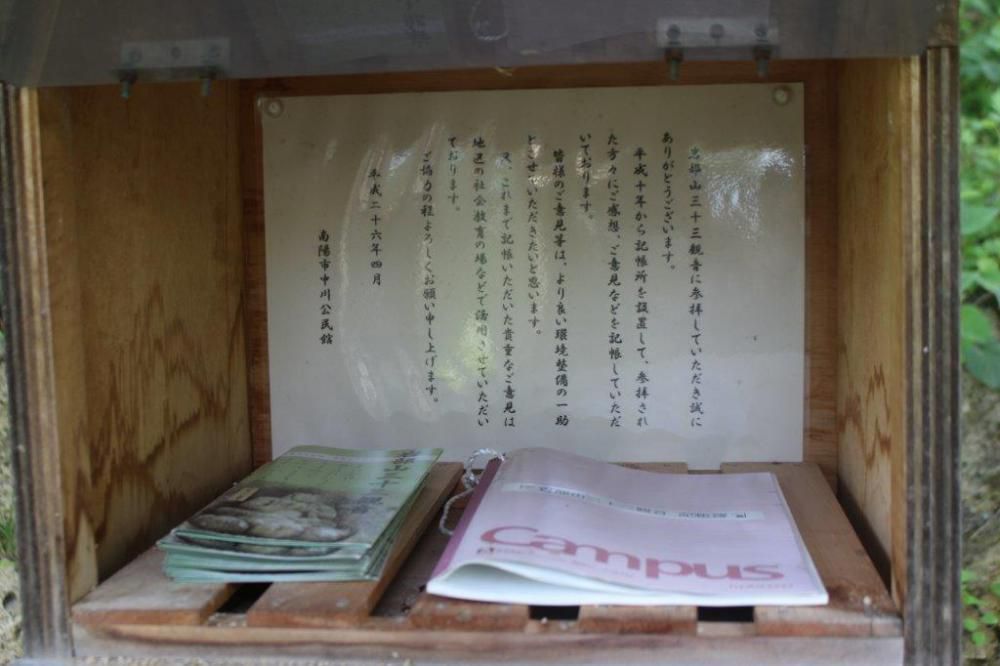 岩部山三十三観音に参拝していただき誠に
ありがとうございます。
平成十年から記帳所を設置して、参拝され
た方々にご感想、ご意見などを記帳していただ
いております。
皆様のご意見等は、より良い環境整備の一助
とさせていただきたいと思います。
又、これまで記帳いただいた貴重なご意見は
地区の社会教育の場などで活用させていただい
ております。
ご協力の程よろしくお願い申し上げます。
平成二十六年四月
南陽市中川公民館
Campus